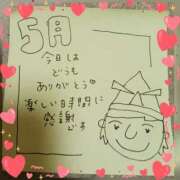 5月
今日は
どうも
ありがとう♡
楽しい時間に
感謝
です